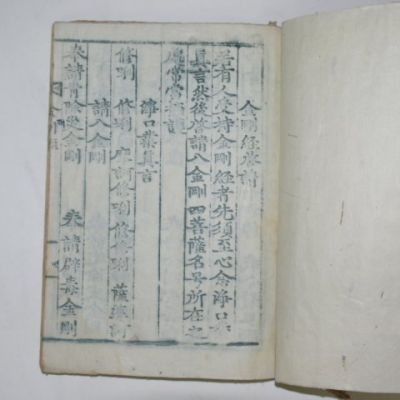 金剛經啓請
若有人受持金剛經者先須至心念淨口業
眞言然後啓請八金剛四菩薩名号所在之
處常當擁護
淨口業眞言
修唎 修唎 摩訶修唎 修修唎 薩婆訶
請八金剛
奉請靑除災金剛 奉請辟毒金剛